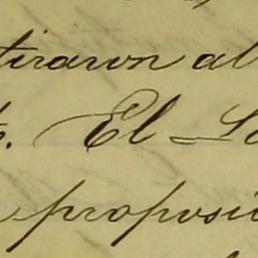 tiraron al
. El
proposi